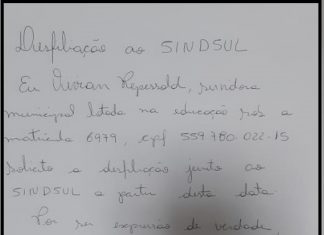 Desfiliação ao SINDSUL
Eu Vivian Repessold, servidora
municipal lotada na educação sob a
matrícula 6979, cpf 559.780.022-15
solicito a desfiliação junto ao
SINDSUL a partir desta data.
Por ser expressão de verdade,